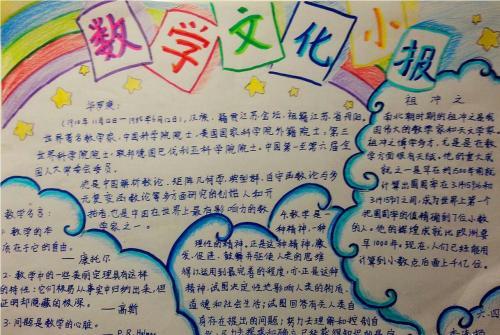 数学文化小报
华罗庚:
(1910年11月12日—1985年6月12日),汉族,籍贯江苏金坛,祖籍江苏省丹阳。
世界著名数学家,中国科学院院士,美国国家科学院外籍院士,第三
世界科学院院士,联邦德国巴伐利亚科学院院士。中国第一至第六届全
国人大常委会委员。
他是中国解析数论、矩阵几何学、典型群、自守函数论与多
元复变函数论等多方面研究的创始人和开
拓者,也是中国在世界上最有影响力的数
学家之一。
祖冲之
南北朝时期的祖冲之是我
国伟大的数学家和天文学家
祖冲之博学多才,尤其是在数
学方面很有天赋。他的重大成
就之一是早在约1500年前就
计算出圆周率在3月15和
3月15到之间,成为世界上第一个
把圆周率的值精确到了位小数
的人。他的辉煌成就比欧洲要
早1000年。现在,人们已经能用
计算到小数点后面上千亿位。
数学名言:
1. 数学的本
质在于它的自由。
—康托尔
2. 数学中的一些美丽定理具有这样
的特性:它们极易从事实中归纳出来,但
证明却隐藏的极深。
—高斯
3. 问题是数学的心脏。
—P.R.Halmos
4.数学是一
种精神,一种
理性的精神。正是这种精神,激
发、促进、鼓舞并驱使人类的思维
得以运用到最完善的程度,亦正是这种
精神,试图决定性地影响人类的物质、
道德和社会生活;试图回答有关人类自
身存在提出的问题;努力去理解和控制自